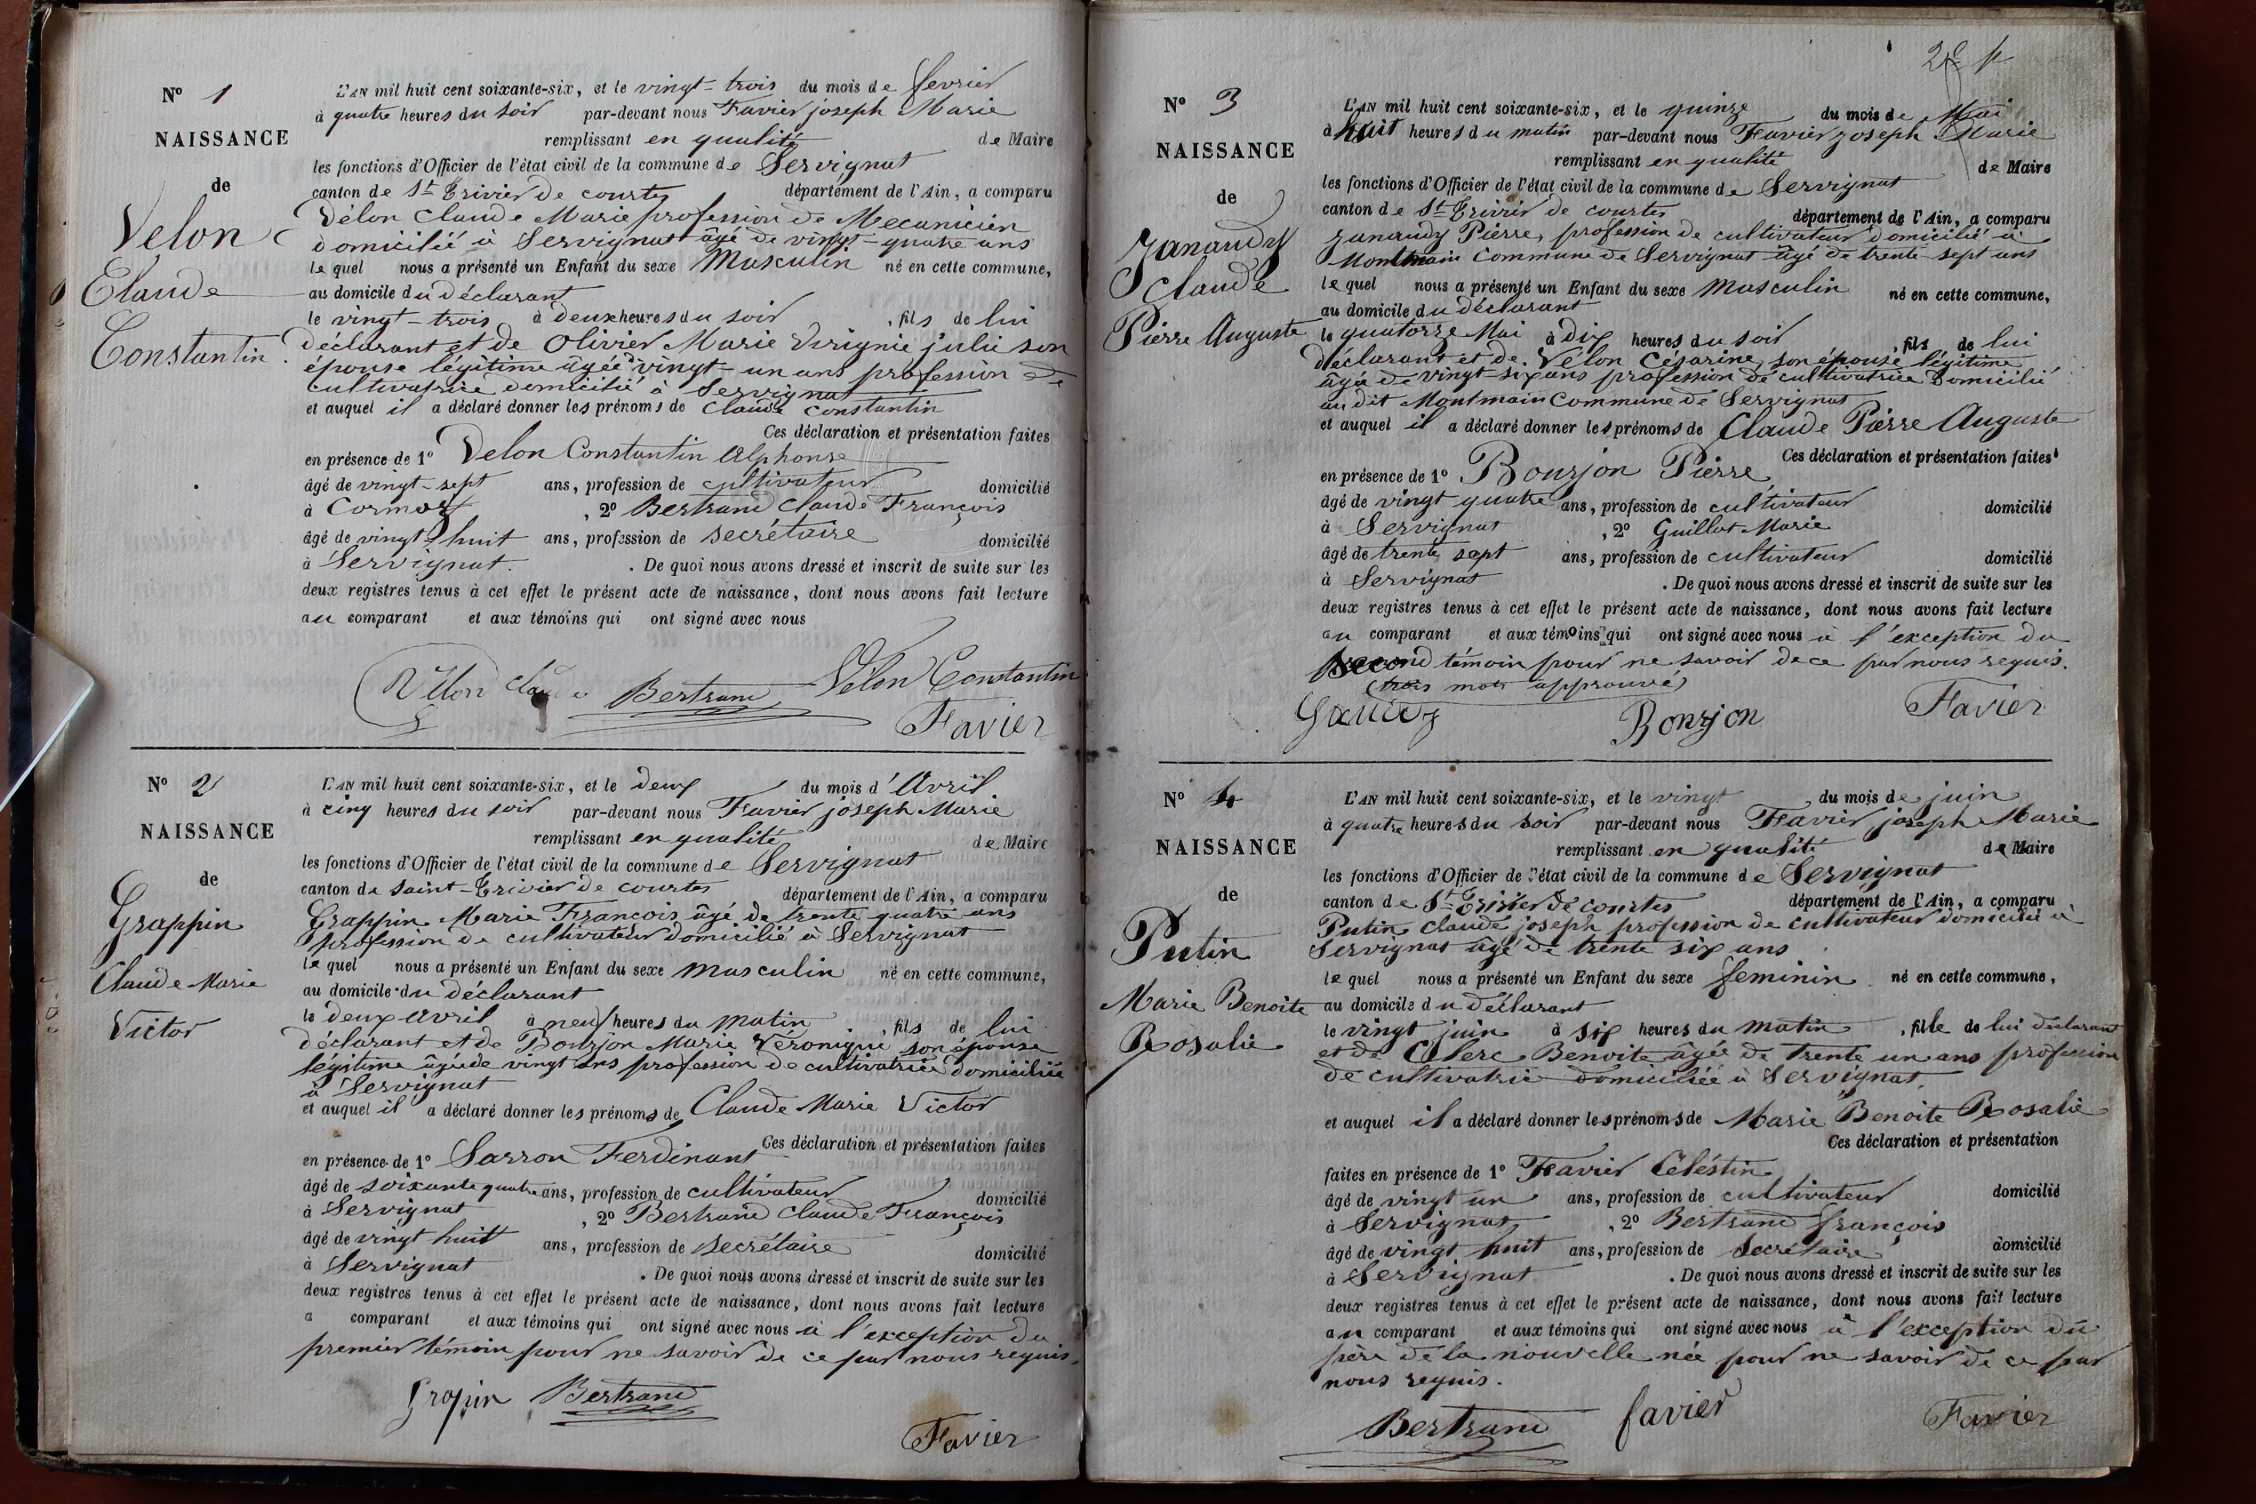 N° 1
NAISSANCE
de
Velon
Claude
Constantin
L'AN mil huit cent soixante-six, et le vingt-trois du mois de fevrier
à quatre heures du soir par-devant nous Favier joseph Marie
remplissant en qualité de Maire
les fonctions d'Officier de l'état civil de la commune de Servignat
canton de St Trivier de courtes département de l'Ain, a comparu
Vélon Claude Marie profession de Mecanicien
domicilié à Servignat âgé de vingt-quatre ans
lequel nous a présenté un Enfant du sexe Masculin né en cette commune,
au domicile du déclarant
le vingt-trois à deux heures du soir, fils de lui
déclarant et de Olivier Marie Virignie julie son
épouse légitime âgée vingt-un ans profession de
cultivatrice domicilié à Servignat
et auquel il a déclaré donner les prénoms de Claude Constantin
Ces déclaration et présentation faites
en présence de 1° Velon Constantin Alphonse
âgé de vingt-sept ans, profession de cultivateur domicilié
à Cormoz, 2° Bertrand Claude François
âgé de vingt-huit ans, profession de secrétaire domicilié
à Servignat. De quoi nous avons dressé et inscrit de suite sur les
deux registres tenus à cet effet le présent acte de naissance, dont nous avons fait lecture
au comparant et aux témoins qui ont signé avec nous
Velon Claude Bertrand Velon Constantin
Favier
N° 2
NAISSANCE
de
Grappin
Claude Marie
Victor
L'AN mil huit cent soixante-six, et le deux du mois d'Avril
à cinq heures du soir par-devant nous Favier joseph Marie
remplissant en qualité de Maire
les fonctions d'Officier de l'état civil de la commune de Servignat
canton de Saint-Trivier de courtes département de l'Ain, a comparu
Grappin Marie François âgé de trente quatre ans
profession de cultivateur domicilié à Servignat
lequel nous a présenté un Enfant du sexe masculin né en cette commune,
au domicile du déclarant
le deux avril à neuf heures du matin, fils de lui
déclarant et de Bourjon Marie Véronique son épouse
légitime âgée de vingt ans profession de cultivatrice domiciliée
à Servignat
et auquel il a déclaré donner les prénoms de Claude Marie Victor
Ces déclaration et présentation faites
en présence de 1° Sarron Ferdinant
âgé de soixante quatre ans, profession de cultivateur domicilié
à Servignat, 2° Bertrand Claude François
âgé de vingt huit ans, profession de secrétaire domicilié
à Servignat. De quoi nous avons dressé et inscrit de suite sur les
deux registres tenus à cet effet le présent acte de naissance, dont nous avons fait lecture
a comparant et aux témoins qui ont signé avec nous à l'exception du
premier témoin pour ne savoir de ce par nous requis.
Gropin Bertrand
Favier
N° 3
NAISSANCE
de
Janaudy
Claude
Pierre Auguste
L'AN mil huit cent soixante-six, et le quinze du mois de Mai
à huit heures du matin par-devant nous Favier joseph Marie
remplissant en qualité de Maire
les fonctions d'Officier de l'état civil de la commune de Servignat
canton de St Trivier de courtes département de l'Ain, a comparu
Janaudy Pierre, profession de cultivateur domicilié à
Montmain Commune de Servignat âgé de trente-sept ans
lequel nous a présenté un Enfant du sexe Masculin né en cette commune,
au domicile du déclarant
le quatorze Mai à dix heures du soir, fils de lui
déclarant et de Vélon Césarine son épouse légitime
âgée de vingt-six ans profession de cultivatrice domicilié
au dit Montmain Commune de Servignat
et auquel il a déclaré donner les prénoms de Claude Pierre Auguste
Ces déclaration et présentation faites
en présence de 1° Bourjon Pierre
âgé de vingt quatre ans, profession de cultivateur domicilié
à Servignat, 2° Guillot Marie
âgé de trente sept ans, profession de cultivateur domicilié
à Servignat. De quoi nous avons dressé et inscrit de suite sur les
deux registres tenus à cet effet le présent acte de naissance, dont nous avons fait lecture
au comparant et aux témoins qui ont signé avec nous à l'exception du
second témoin pour ne savoir de ce par nous requis.
(trois mots approuvé)
Bonrjon Favier
N° 4
NAISSANCE
de
Putin
Marie Benoite
Rosalie
L'AN mil huit cent soixante-six, et le vingt du mois de juin
à quatre heures du soir par-devant nous Favier joseph Marie
remplissant en qualité de Maire
les fonctions d'Officier de l'état civil de la commune de Servignat
canton de St Trivier de courtes département de l'Ain, a comparu
Putin Claude joseph profession de cultivateur domicilié à
Servignat âgé de trente six ans
lequel nous a présenté un Enfant du sexe feminin né en cette commune,
au domicile du déclarant
le vingt juin à six heures du matin, fille de lui déclarant
et de Clerc Benoite âgée de trente un ans profession
de cultivatrice domiciliée à Servignat.
et auquel il a déclaré donner les prénoms de Marie Benoite Rosalie
Ces déclaration et présentation
faites en présence de 1° Favier Célestin
âgé de vingt un ans, profession de cultivateur domicilié
à Servignat, 2° Bertrand françois
âgé de vingt huit ans, profession de Secrétaire domicilié
à Servignat. De quoi nous avons dressé et inscrit de suite sur les
deux registres tenus à cet effet le présent acte de naissance, dont nous avons fait lecture
au comparant et aux témoins qui ont signé avec nous à l'exception du
père de la nouvelle née pour ne savoir de ce par
nous requis.
Bertrand favier Favier